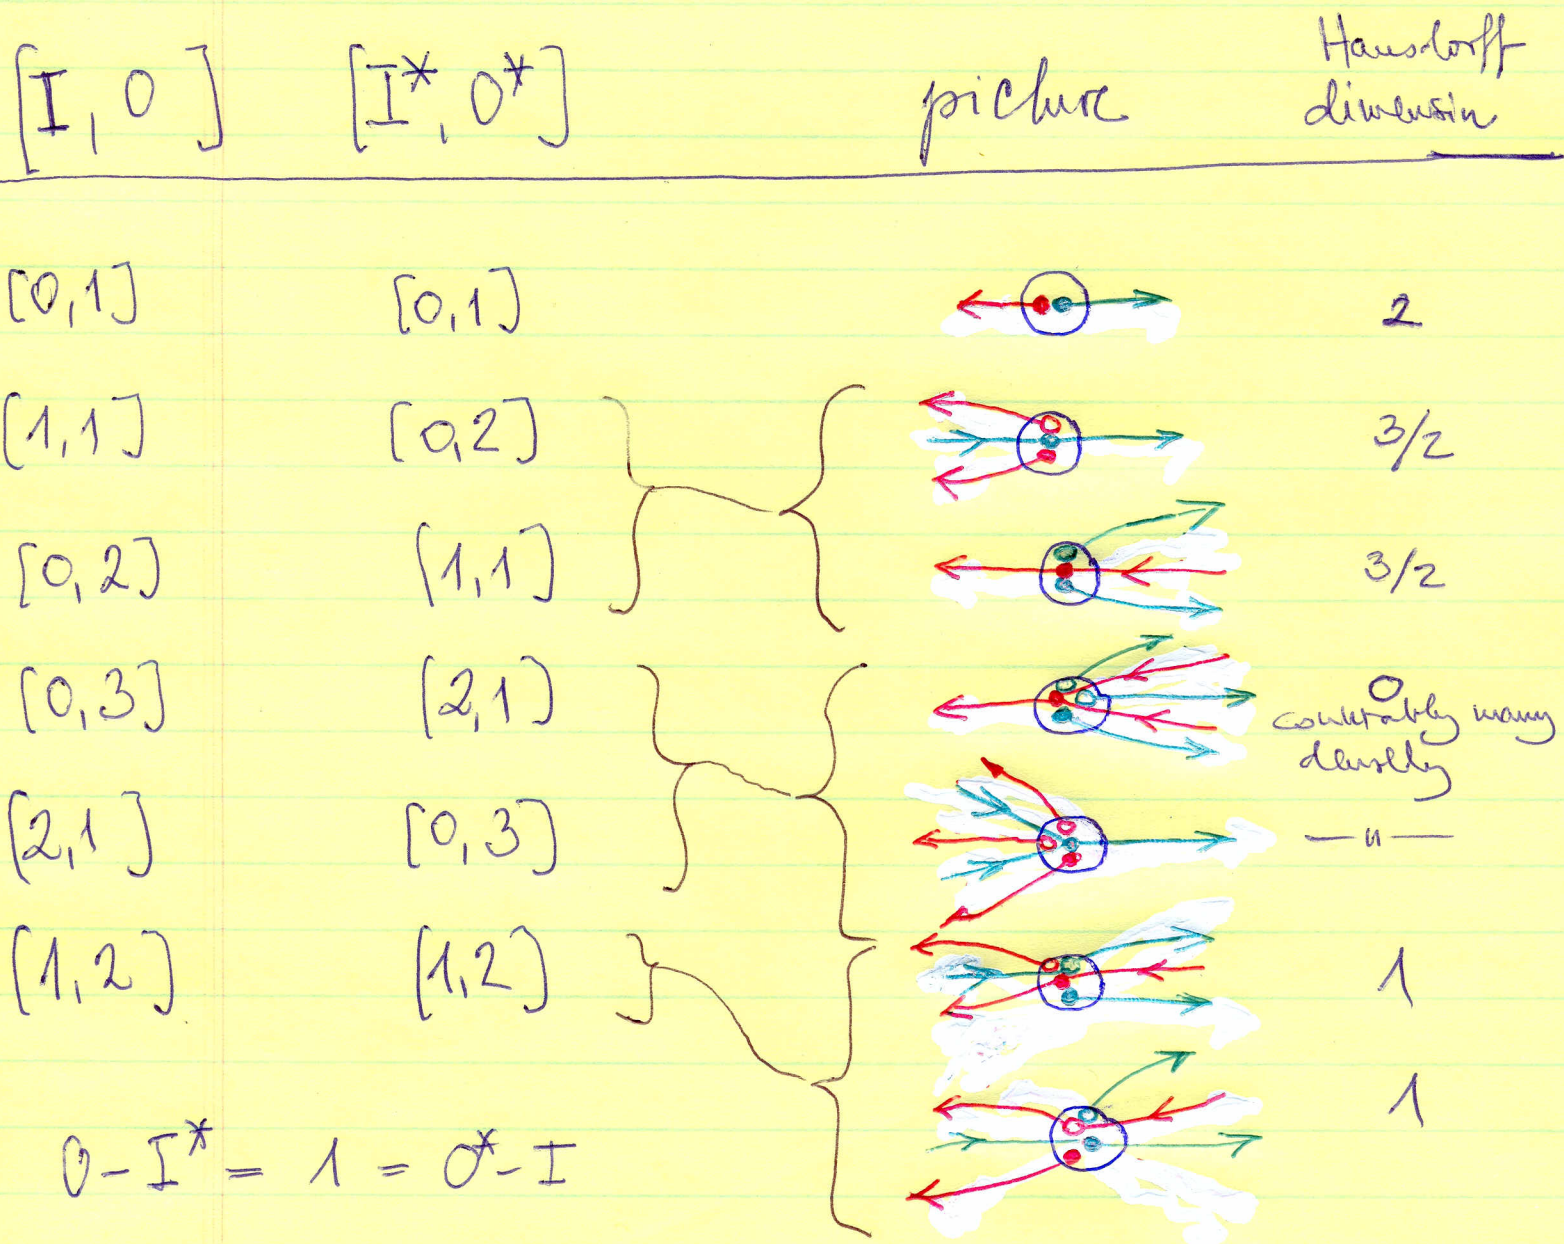 [I, O] [I*, O*] picture Hausdorff
dimensin
[0,1] [0,1] 2
[1,1] [0,2] 3/2
[0,2] [1,1] 3/2
[0,3] [2,1] 0
countably many
densely
[2,1] [0,3] —"—
[1,2] [1,2] 1
1
O - I* = 1 = O* - I